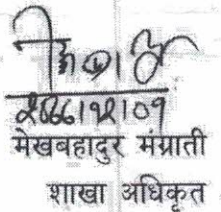 २०७६।१२।०१
मेखबहादुर मंग्राती
शाखा अधिकृत